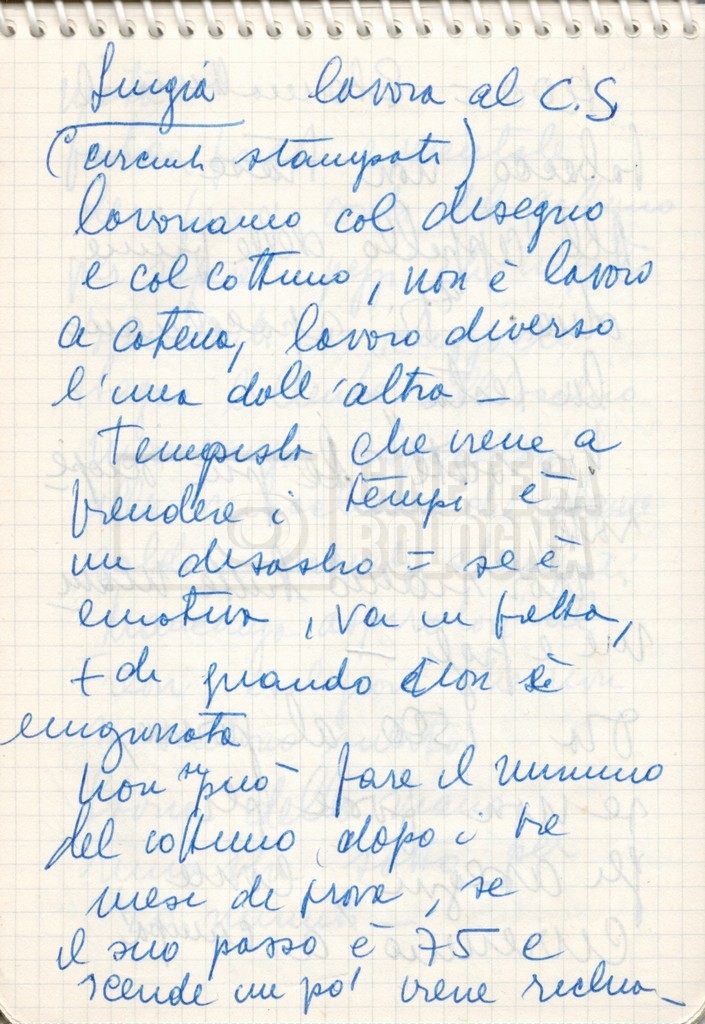 Luigia lavora al C.S.
(circuiti stampati)
lavoriamo col disegno
e col cottimo, non è lavoro
a catena, lavoro diverso
l'una dall'altra -
tempista che viene a
prendere i tempi è
un disastro = se è
emotiva, va in fretta,
+ di quando non è
cronometrata
non si può fare il minimo
del cottimo, dopo i tre
mesi di prova, se
il suo passo è 75 e
scende un po' viene